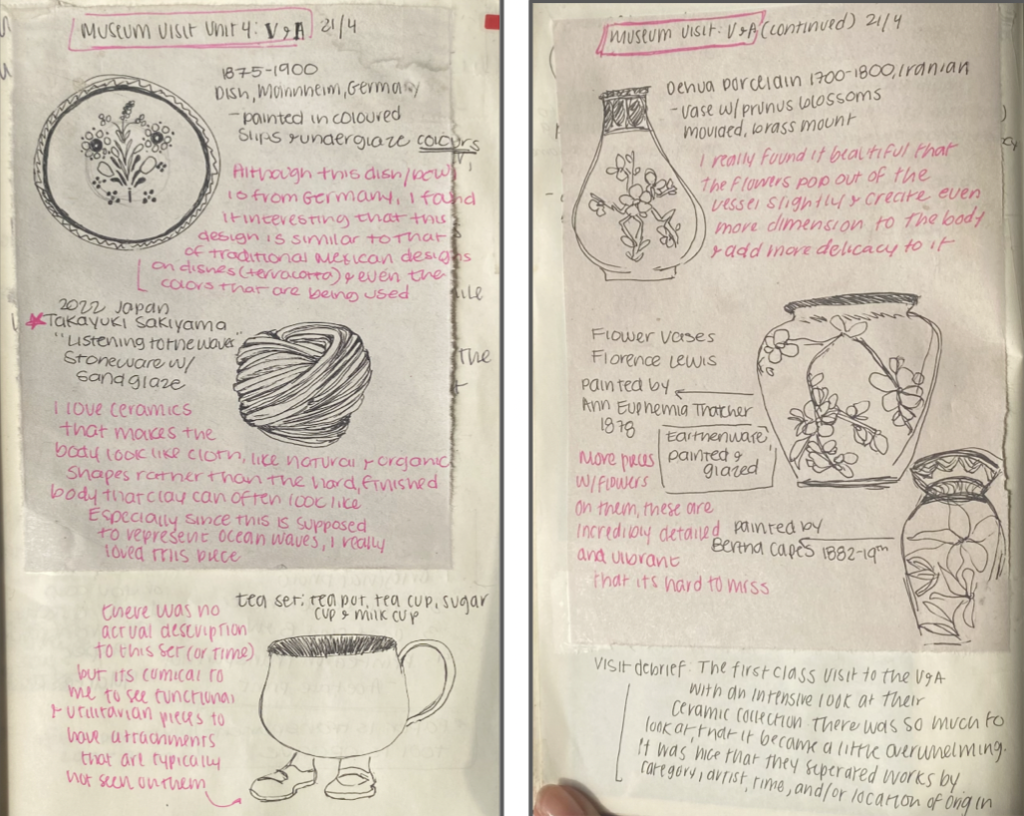 Museum Visit Unit 4: V&A 21/4
1875-1900
Dish, Mannheim, Germany
-painted in coloured
slips & underglaze colours
Although this dish/bowl
is from Germany, I found
it interesting that this
design is similar to that
of traditional Mexican designs
on dishes (terracotta) & even the
colors that are being used
2022 Japan
Takayuki Sakiyama
"Listening to the waves"
Stoneware w/
sand glaze
I love ceramics
that makes the
body look like cloth, like natural & organic
shapes rather than the hard, finished
body that clay can often look like
Especially since this is supposed
to represent ocean waves, I really
loved this piece
The
tea set: tea pot, tea cup, sugar
cup & milk cup
there was no
actual description
to this set (or time)
but its comical to
me to see functional
& utilitarian pieces to
have attachments
that are typically
not seen on them
Museum Visit: V&A (continued) 21/4
Dehua porcelain 1700-1800, Iranian
-vase w/ prunus blossoms
moulded, brass mount
I really found it beautiful that
the flowers pop out of the
vessel slightly & create even
more dimension to the body
& add more delicacy to it
Flower Vases
Florence Lewis
painted by
Ann Euphemia Thatcher
1878
Earthenware,
painted &
glazed
More pieces
w/flowers
on them, these are
incredibly detailed
and vibrant
that its hard to miss
painted by
Bertha Capes 1882-19th
Visit debrief: The first class visit to the V&A
with an intensive look at their
ceramic collection. There was so much to
look at, that it became a little overwhelming.
It was nice that they seperated works by
category, artist, time, and/or location of origin